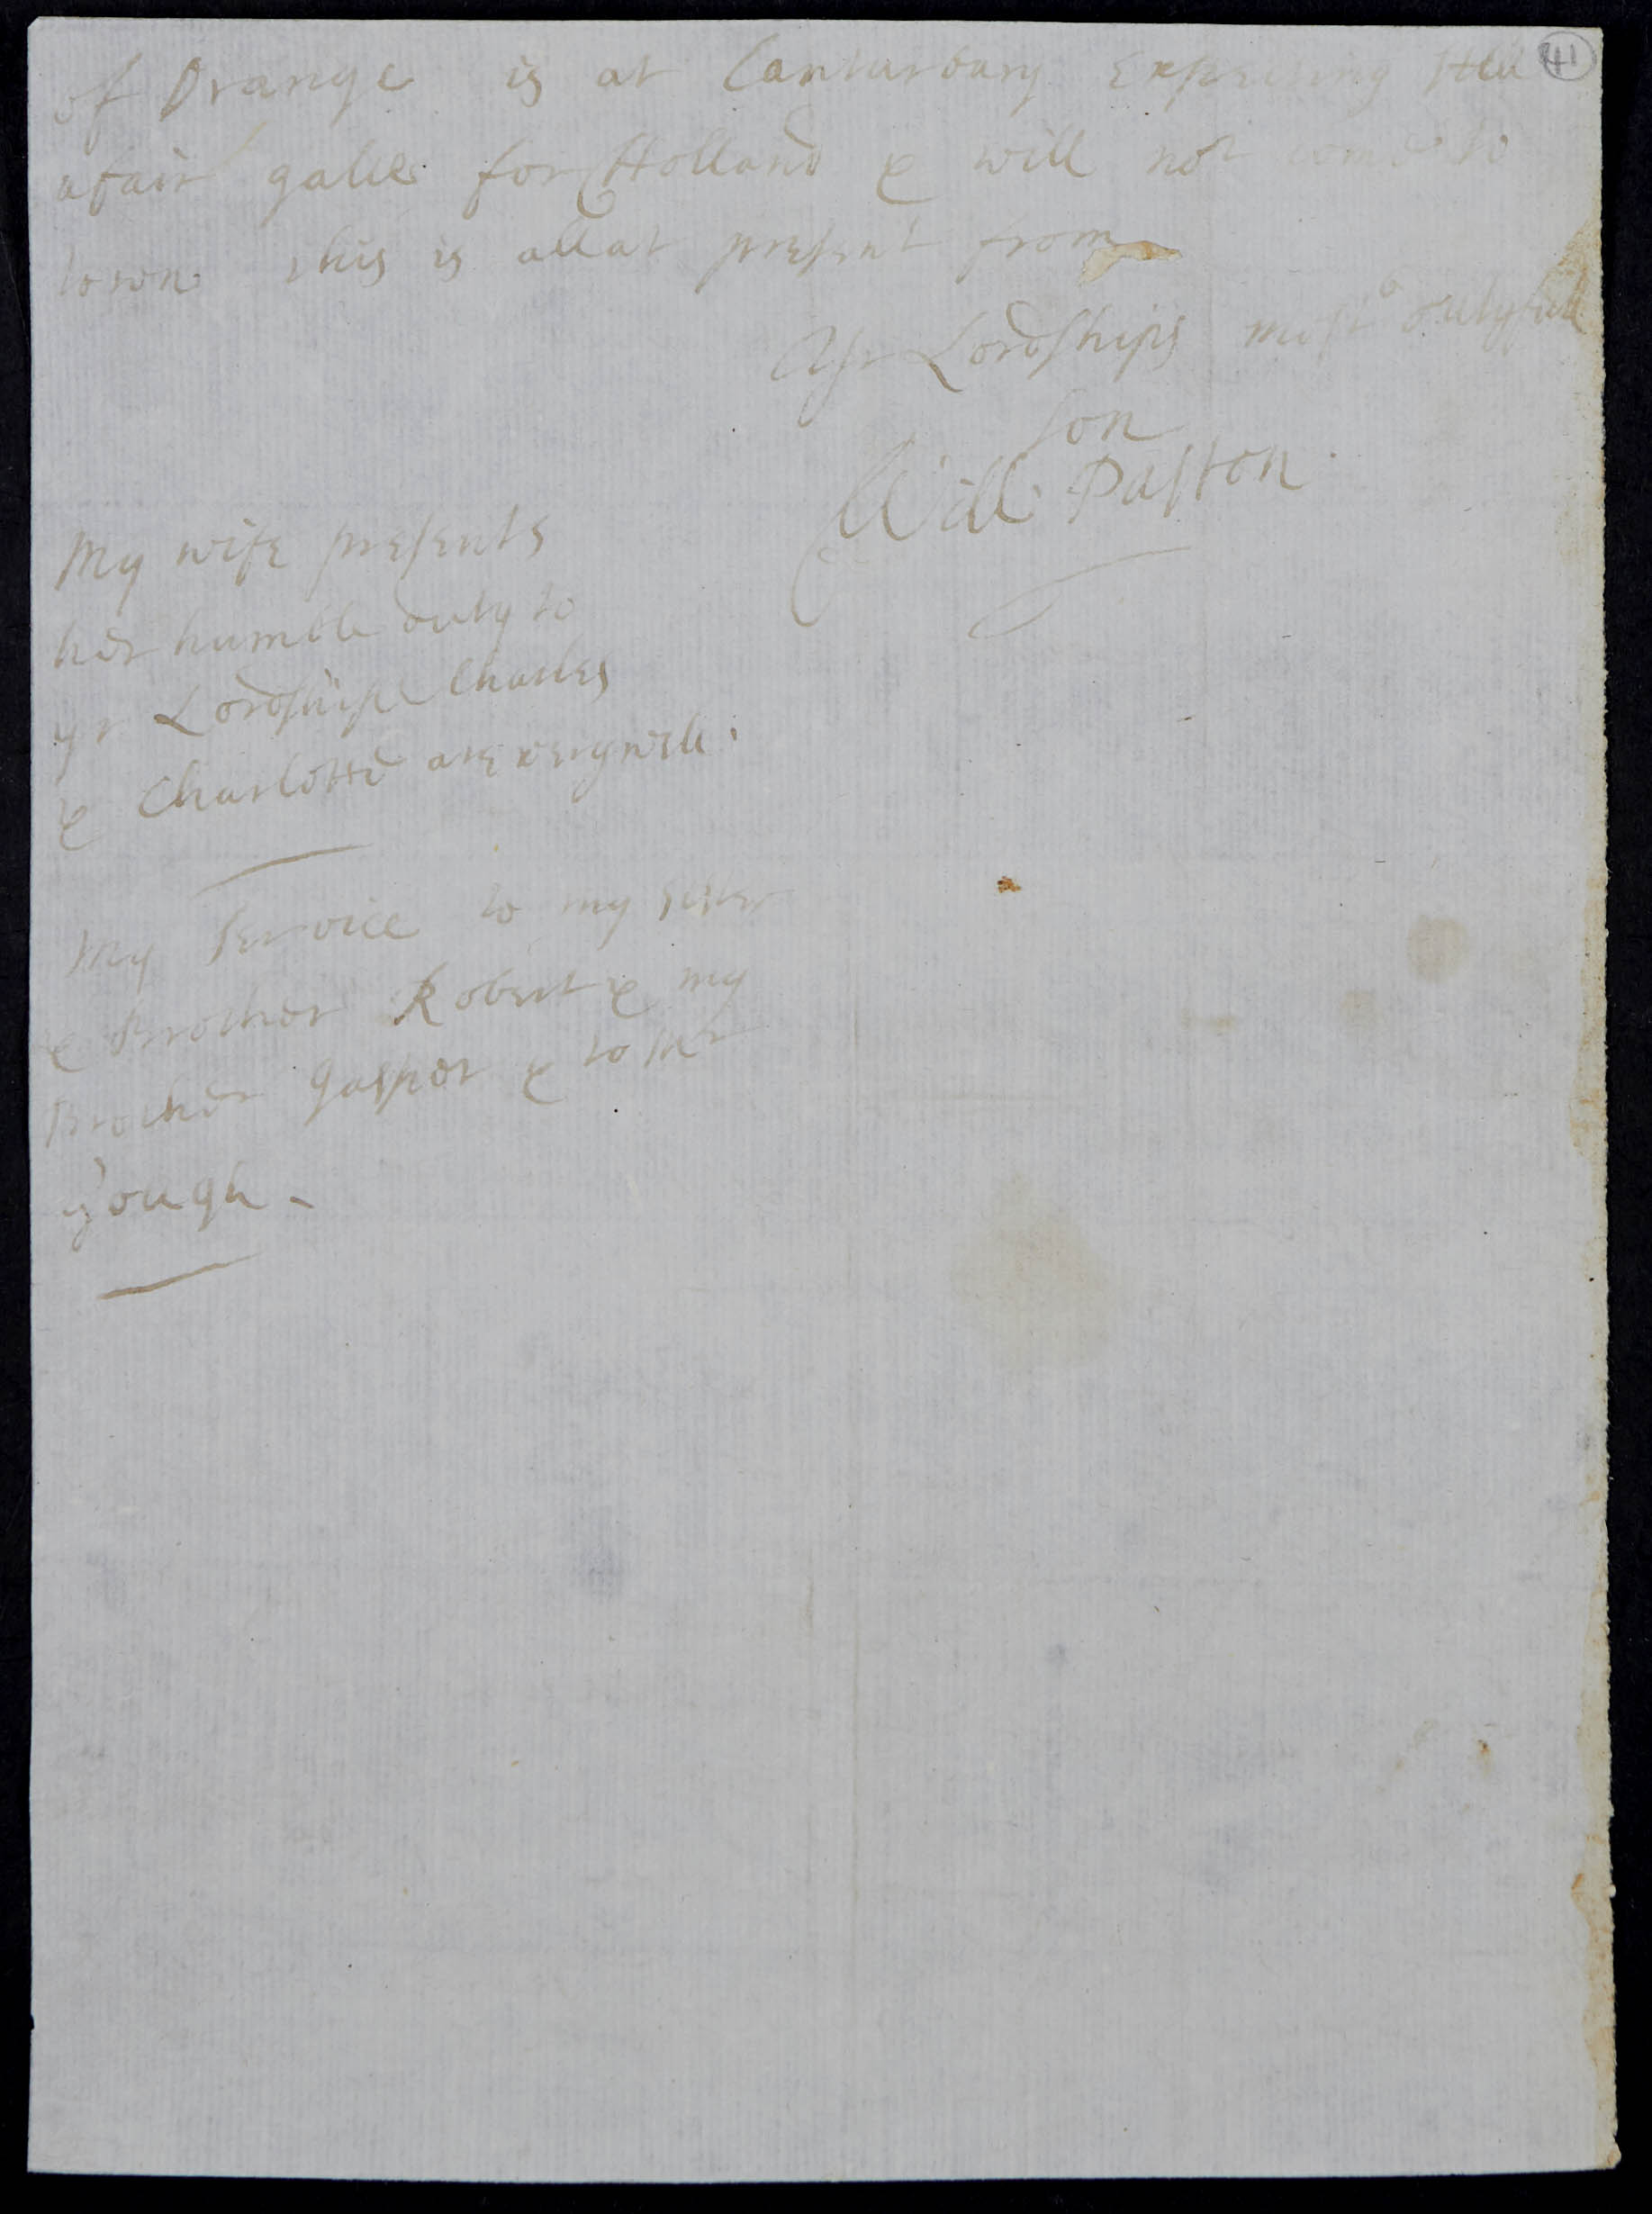 of Orange is at Canturbury Expecting still 41
afair gale for Holland & will not come to
town this is all at present from
Yr Lordships most dutyfull
son
Will: Paston
My wife presents
her humble duty to
yr Lordship Charles
& Charlotte are very well.
My Service to my sister
& Brother Robert & my
Brother Gasper & to
gough